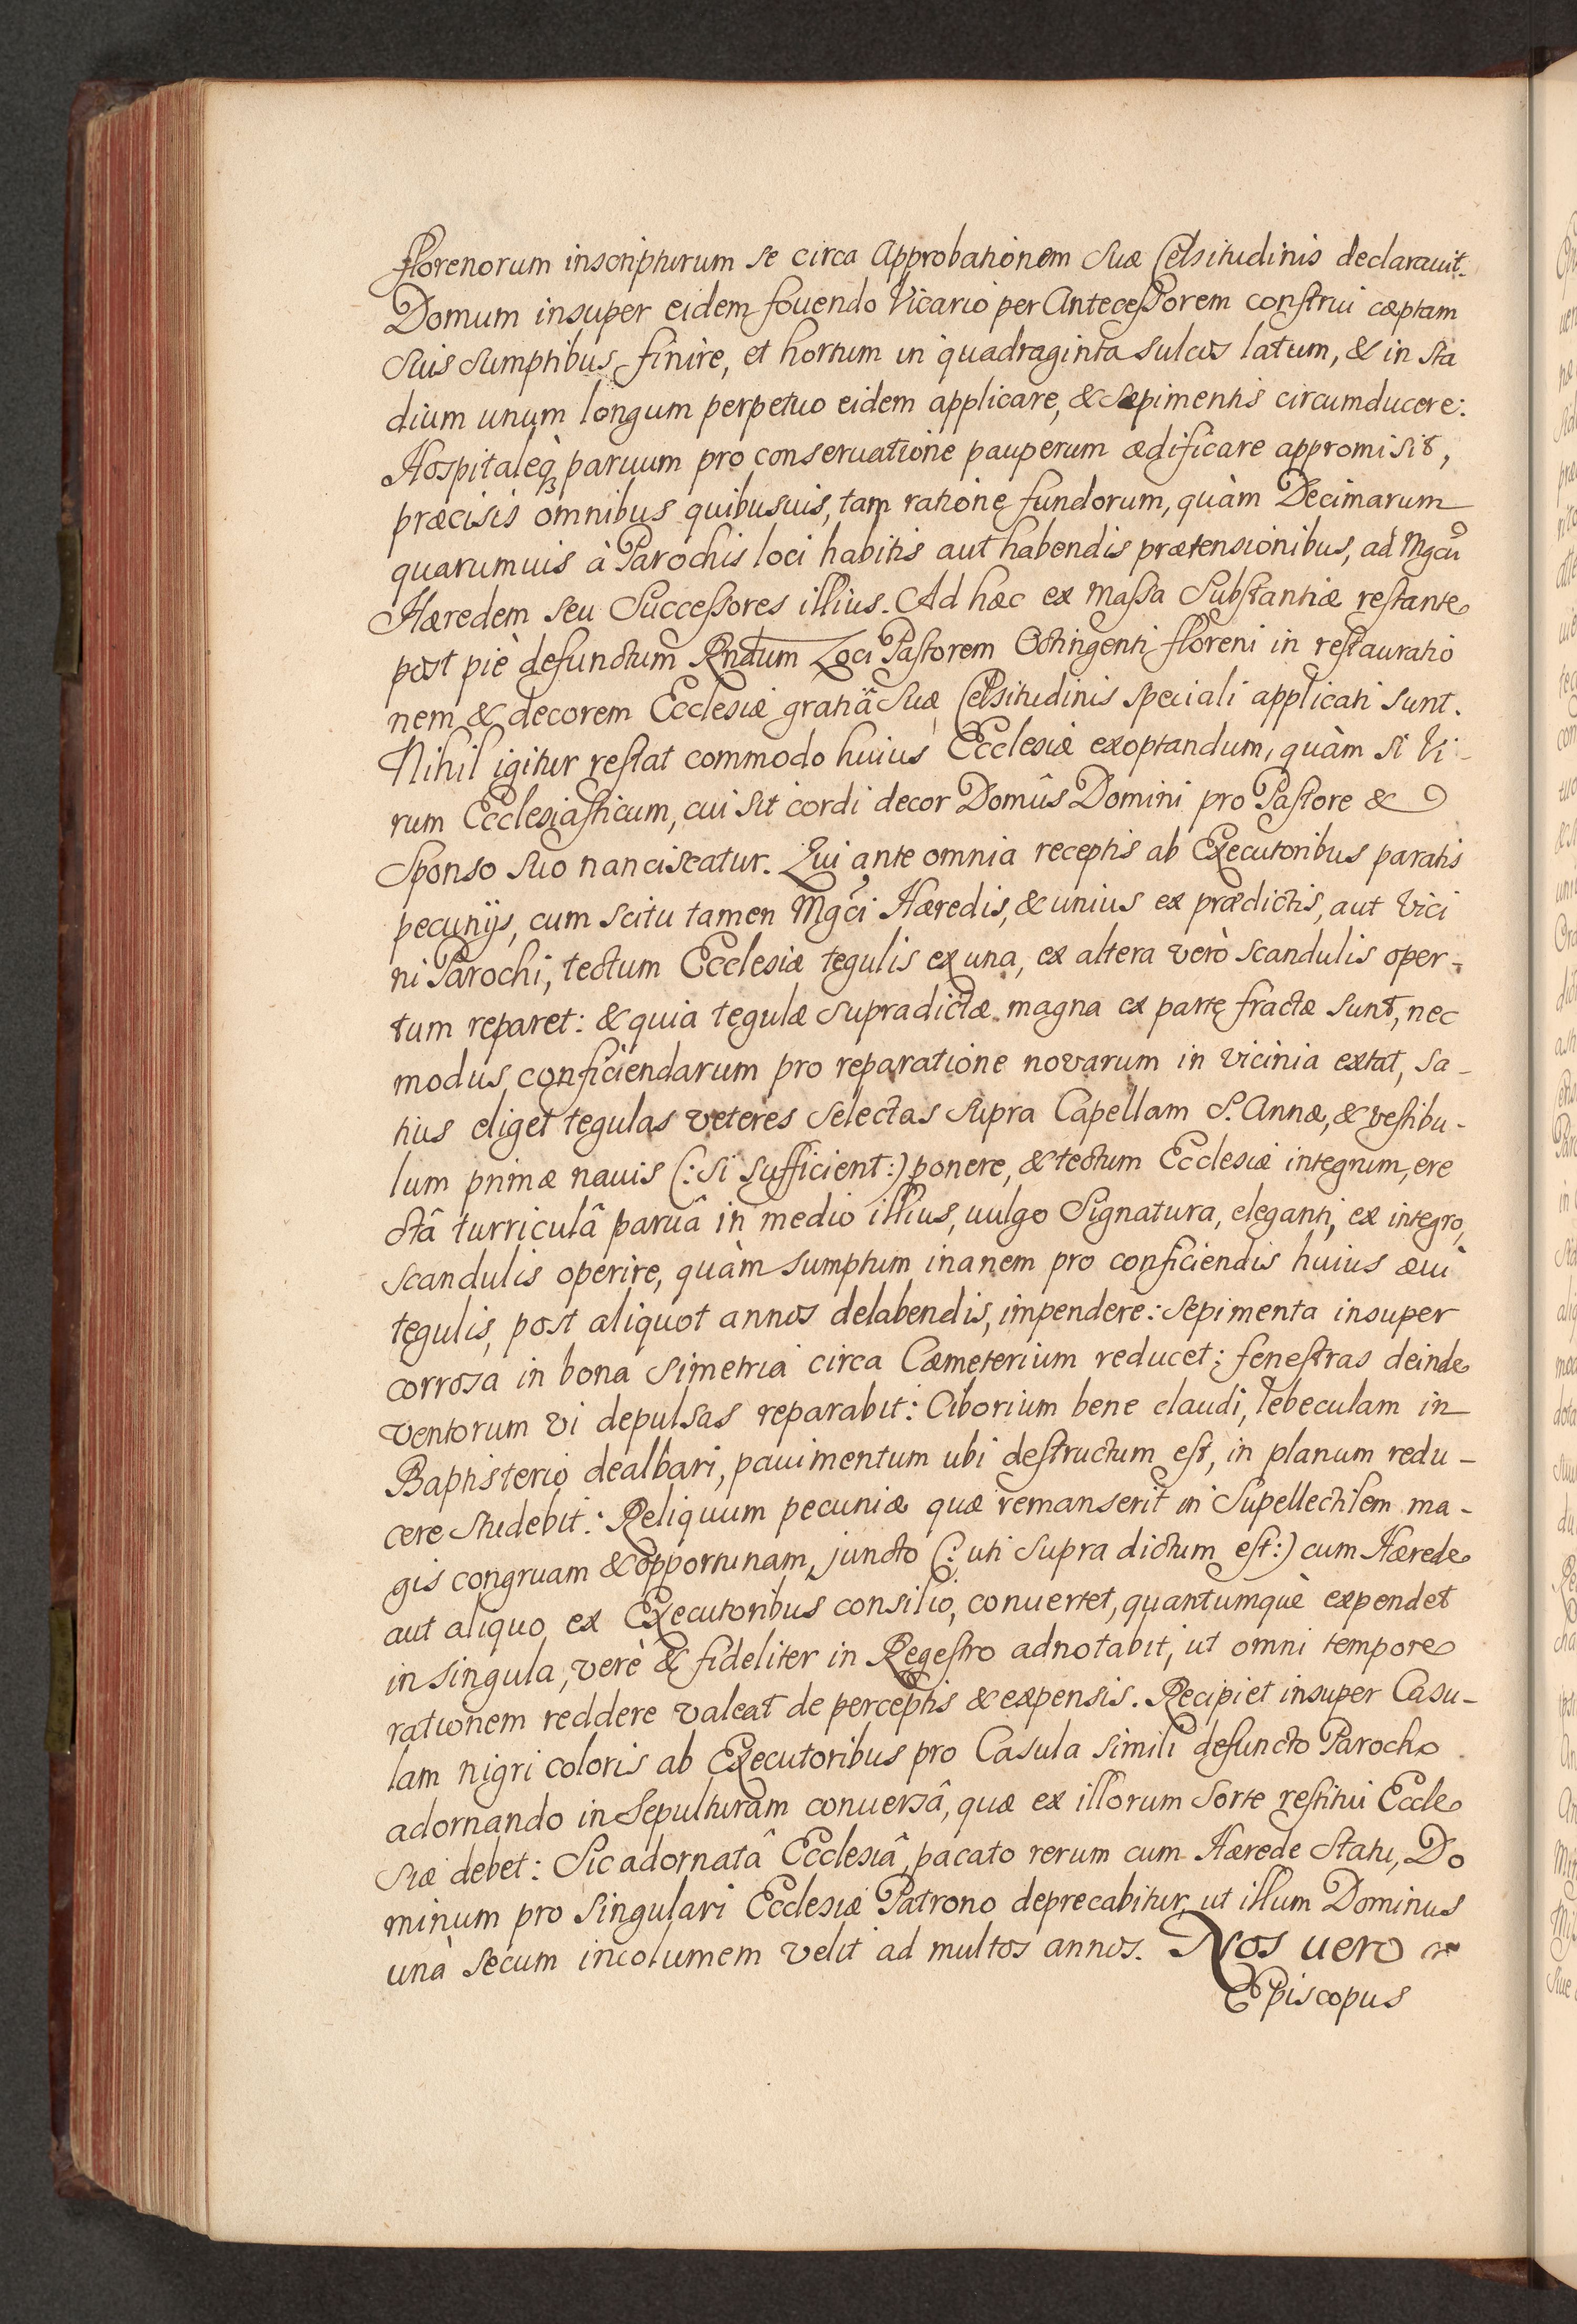 florenorum inscripturum se circa Approbationem Suæ Celsitudinis declarauit.
Domum insuper eidem fouendo Vicario per Antecessorem construi cæptam
Suis Sumptibus finire, et hortum in quadraginta sulcos latum, & in sta
dium unum longum perpetuo eidem applicare, & Sæpimentis circumducere:
Hospitaleq3 paruum pro conseruatione pauperum ædificare appromisit,
præcisis omnibus quibusuis, tam ratione fundorum, quàm Decimarum
quarumuis à Parochis loci habitis aut habendis prætensionibus, ad Mgcũ
Hæredem seu Successores illius. Ad hæc ex Massa Substantiæ restante
post piè defunctum Rndum Loci Pastorem Octingenti floreni in restauratio
nem & decorem Ecclesiæ gratiâ Suæ Celsitudinis speciali applicati sunt.
Nihil igitur restat commodo huius Ecclesiæ exoptandum, quàm si Vi-
rum Ecclesiasticum, cui sit cordi decor Domûs Domini pro Pastore &
Sponso Suo nanciscatur. Qui ante omnia receptis ab Executoribus paratis
pecunijs, cum scitu tamen Mgci Hæredis, & unius ex prædictis, aut Vici
ni Parochi, tectum Ecclesiæ tegulis ex una, ex altera verò scandulis oper-
tum reparet: & quia tegulæ supradictæ magna ex parte fractæ sunt, nec
modus conficiendarum pro reparatione novarum in vicinia extat, sa-
tius eliget tegulas veteres selectas supra Capellam S. Annæ, & vestibu-
lum primæ nauis (: si sufficient :) ponere, & tectum Ecclesiæ integrum, ere
ctâ turriculâ paruâ in medio illius, uulgo Signatura, eleganti, ex integro,
scandulis operire, quàm sumptum inanem pro conficiendis huius æui
tegulis, post aliquot annos delabendis, impendere: sepimenta insuper
corrosa in bona simetria circa Cæmeterium reducet; fenestras deinde
ventorum vi depulsas reparabit: Ciborium bene claudi, Tebeculam in
Baptisterio dealbari, pauimentum ubi destructum est, in planum redu-
cere studebit: Reliquum pecuniæ quæ remanserit in Supellectilem ma-
gis congruam & opportunam, juncto (: uti supra dictum est :) cum Hærede
aut aliquo ex Executoribus consilio, conuertet, quantumquè expendet
in singula, verè & fideliter in Regestro adnotabit, ut omni tempore
rationem reddere valeat de perceptis & expensis. Recipiet insuper Casu-
lam nigri coloris ab Executoribus pro Casula simili defuncto Parocho
adornando in Sepulturam conuersâ, quæ ex illorum sorte restitui Eccle
siæ debet: Sic adornatâ Ecclesiâ, pacato rerum cum Hærede statu, Do
minum pro singulari Ecclesiæ Patrono deprecabitur, ut illum Dominus
unà secum incolumem velit ad multos annos. Nos uero
Episcopus